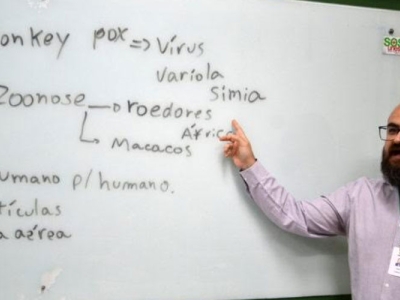 onkey pox => Vírus
Varíola
Símia
Zoonose → roedores
África
↳ Macacos
umano p/humano.
tículas
a aérea
SOS